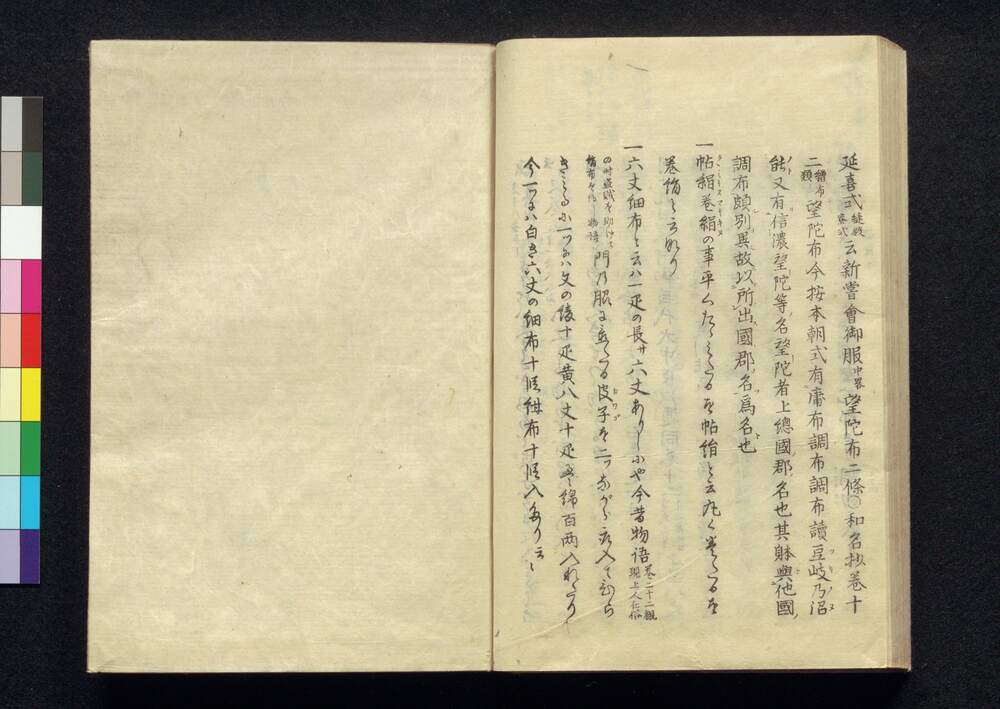 延喜式縫殿寮式云新嘗會御服中畧望陀布二條○和名抄巻十
二絹布類望陀布今按本朝式有庸布調布調布讀豆岐乃沼
能又有信濃望陀等名望陀者上總國郡名也其躰與他國
調布頗別異故以所出國郡名爲名也
一帖絹巻絹の事平くたゝみたるを帖絹と云丸く巻たるを
巻絹と云なり
一六丈細布と云ハ一疋の長サ六丈ありしにや今昔物語巻二十二観現上人在俗
の時盗賊を助けて絹布を得し物語門乃脇に立たる皮子を二ツながら取入てひら
きみるに一ツにハ文の綾十疋黄八丈十疋 綿百両入れたり
今一ツにハ白き六丈の細布十段紺布十段入たり云々